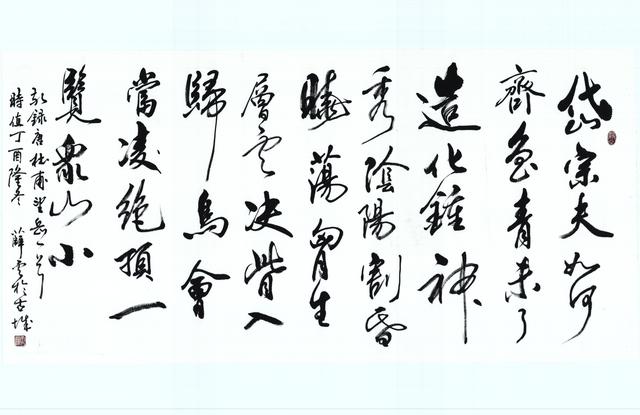 岱宗夫如何
齊魯青未了
造化鍾神
秀陰陽割昏
曉蕩胸生
層云決眥入
歸鳥會
當凌絕頂一
覽眾山小
敬錄唐杜甫望岳一首
時值丁酉隆冬 薛云於古城